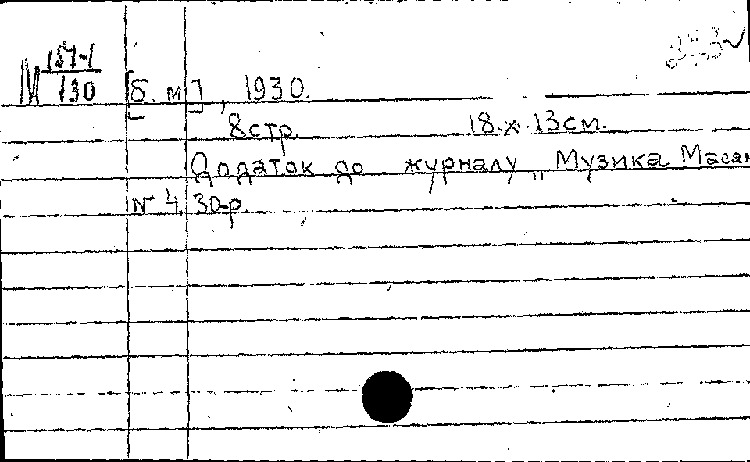 М 157-1
130 [б. м.], 1930.
8 стр. 18 х 13 см.
Додаток до журналу „Музика Масам
№ 4, 30 р.